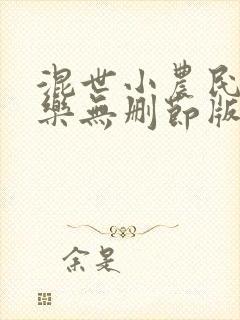 混世小農民
藥無刪節版
余是